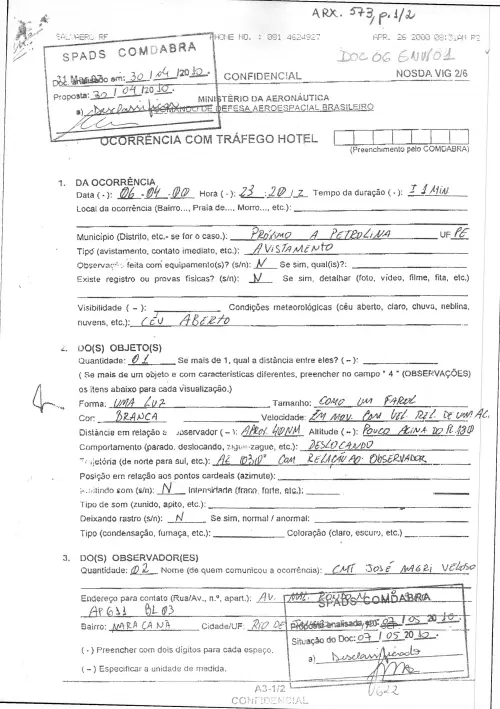 ARX. 573, p. 1/2
PHONE NO. : 081 4624927
APR. 26 2000 08:31AM P2
SPADS COMDABRA
DOC 06 ENV01
Doc analisado em: 30 / 04 / 2010.
CONFIDENCIAL
NOSDA VIG 2/6
Proposta: 30 / 04 / 2010.
MINISTÉRIO DA AERONÁUTICA
a) Desclassificado
DE DEFESA AEROESPACIAL BRASILEIRO
OCORRÊNCIA COM TRÁFEGO HOTEL
(Preenchimento pelo COMDABRA)
1. DA OCORRÊNCIA
Data ( · ): 06 - 04 - 00 Hora ( · ): 23 : 20 / Z Tempo da duração ( · ): ± 1 MIN
Local da ocorrência (Bairro..., Praia de..., Morro..., etc.):
Município (Distrito, etc.- se for o caso.): PRÓXIMO A PETROLINA UF PE
Tipo (avistamento, contato imediato, etc.): AVISTAMENTO
Observação feita com equipamento(s)? (s/n): N Se sim, qual(is)?:
Existe registro ou provas físicas? (s/n): N Se sim, detalhar (foto, vídeo, filme, fita, etc.)
Visibilidade ( – ): Condições meteorológicas (céu aberto, claro, chuva, neblina,
nuvens, etc.): CÉU ABERTO
2. DO(S) OBJETO(S)
Quantidade: 01 Se mais de 1, qual a distância entre eles? ( – ):
( Se mais de um objeto e com características diferentes, preencher no campo " 4 " (OBSERVAÇÕES)
os itens abaixo para cada visualização.)
Forma: UMA LUZ Tamanho: COMO UM FAROL
Cor: BRANCA Velocidade: EM MOV. COM VEL REL. DE UMA AC.
Distância em relação a observador ( – ): APROX 40NM Altitude ( – ): POUCO ACIMA DO FL 390
Comportamento (parado, deslocando, zigue-zague, etc.): DESLOCANDO
Trajetória (de norte para sul, etc.): COM RELAÇÃO AO OBSERVADOR
Posição em relação aos pontos cardeais (azimute):
Emitindo som (s/n): N Intensidade (fraco, forte, etc.):
Tipo de som (zunido, apito, etc.):
Deixando rastro (s/n): N Se sim, normal / anormal:
Tipo (condensação, fumaça, etc.): Coloração (claro, escuro, etc.)
3. DO(S) OBSERVADOR(ES)
Quantidade: 02 Nome (de quem comunicou a ocorrência): CMT JOSÉ MAGRI VELOSO
Endereço para contato (Rua/Av., n.º, apart.): AV. MAL RONDON
SPADS COMDABRA
AP 611 BL 03
Bairro: MARACANÃ Cidade/UF: RIO DE
Proposta analisada, em: 07 / 05 2010
Situação do Doc: 07 / 05 2010.
( · ) Preencher com dois dígitos para cada espaço.
a) Desclassificado
( – ) Especificar a unidade de medida.
A3-1/2
CONFIDENCIAL